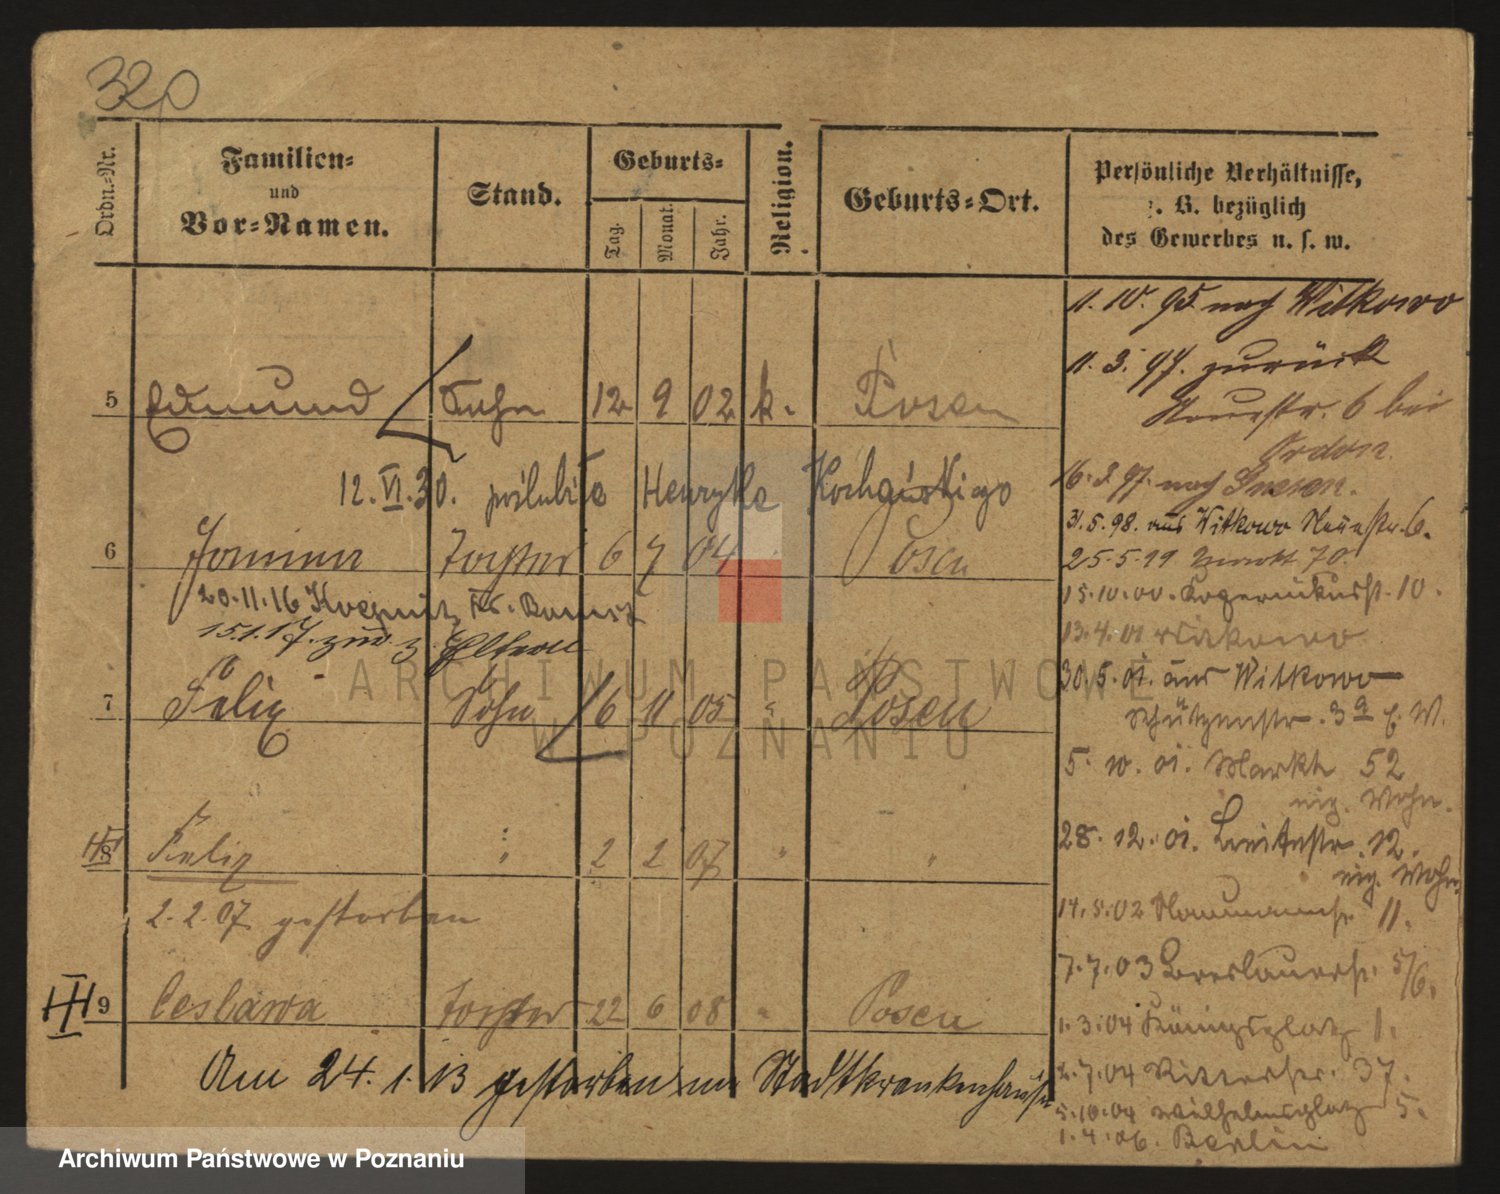 320
Ordn.-Nr.
Familien-
und
Vor-Namen.
Stand.
Geburts-
Tag.
Monat.
Jahr.
Religion.
Geburts-Ort.
Persönliche Verhältnisse,
z. B. bezüglich
des Gewerbes u. s. w.
5 Edmund Sohn 12 9 02 k. Posen
12. VI. 30. poślubiła Henryka
6 Tochter 6 7 04 Posen
20.11.16 Kr. Bomst
15.1.17. zur. z. Eltern
7 Felix Sohn 6 11 05 " Posen
8 Felix " 2 2 07 " "
2.2.07 gestorben
9 Ceslawa Tochter 22 6 08 " Posen
Am 24. 1. 13 gestorben im Stadtkrankenhause
11. 10. 95. nach Witkowo
11. 3. 97. zurück
Neuestr. 6 bei
Ordon.
16. 3. 97. nach Gnesen.
31.5.98. aus Witkowo Neuestr. 6.
25.5.99 70.
15.10.00. 10.
13.4.01 Witkowo
30.5.01. aus Witkowo
Schützenstr. 3a b. W.
5. 10. 01. Markt 52
eig. Wohn.
28. 12. 01. Breitestr. 12.
eig. Wohn.
14.5.02 Naumannstr. 11.
7.7.03 Breslauerstr. 5/6.
1.3.04 Königsplatz 1.
2.7.04 Ritterstr. 37.
5.10.04 Wilhelmsplatz 5.
1.4.06. Berlin
ARCHIWUM PAŃSTWOWE
W POZNANIU
Archiwum Państwowe w Poznaniu